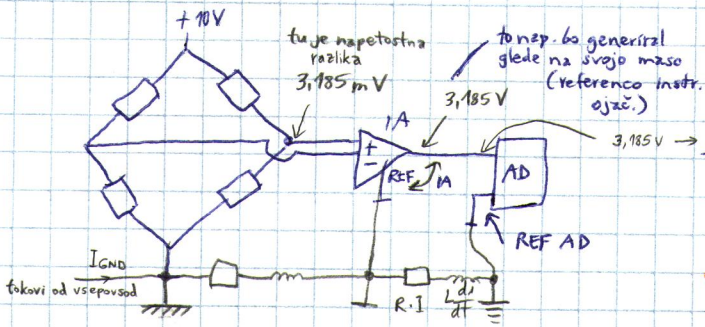 + 10V
tu je napetostna
razlika
3,185 mV
to nap. bo generiral
glede na svojo maso
(referenco instr.
ojač.)
3,185V
3,185V →
IA
+
-
REF
IA
AD
REF AD
I GND
tokovi od vsepovsod
R·I
L di/dt